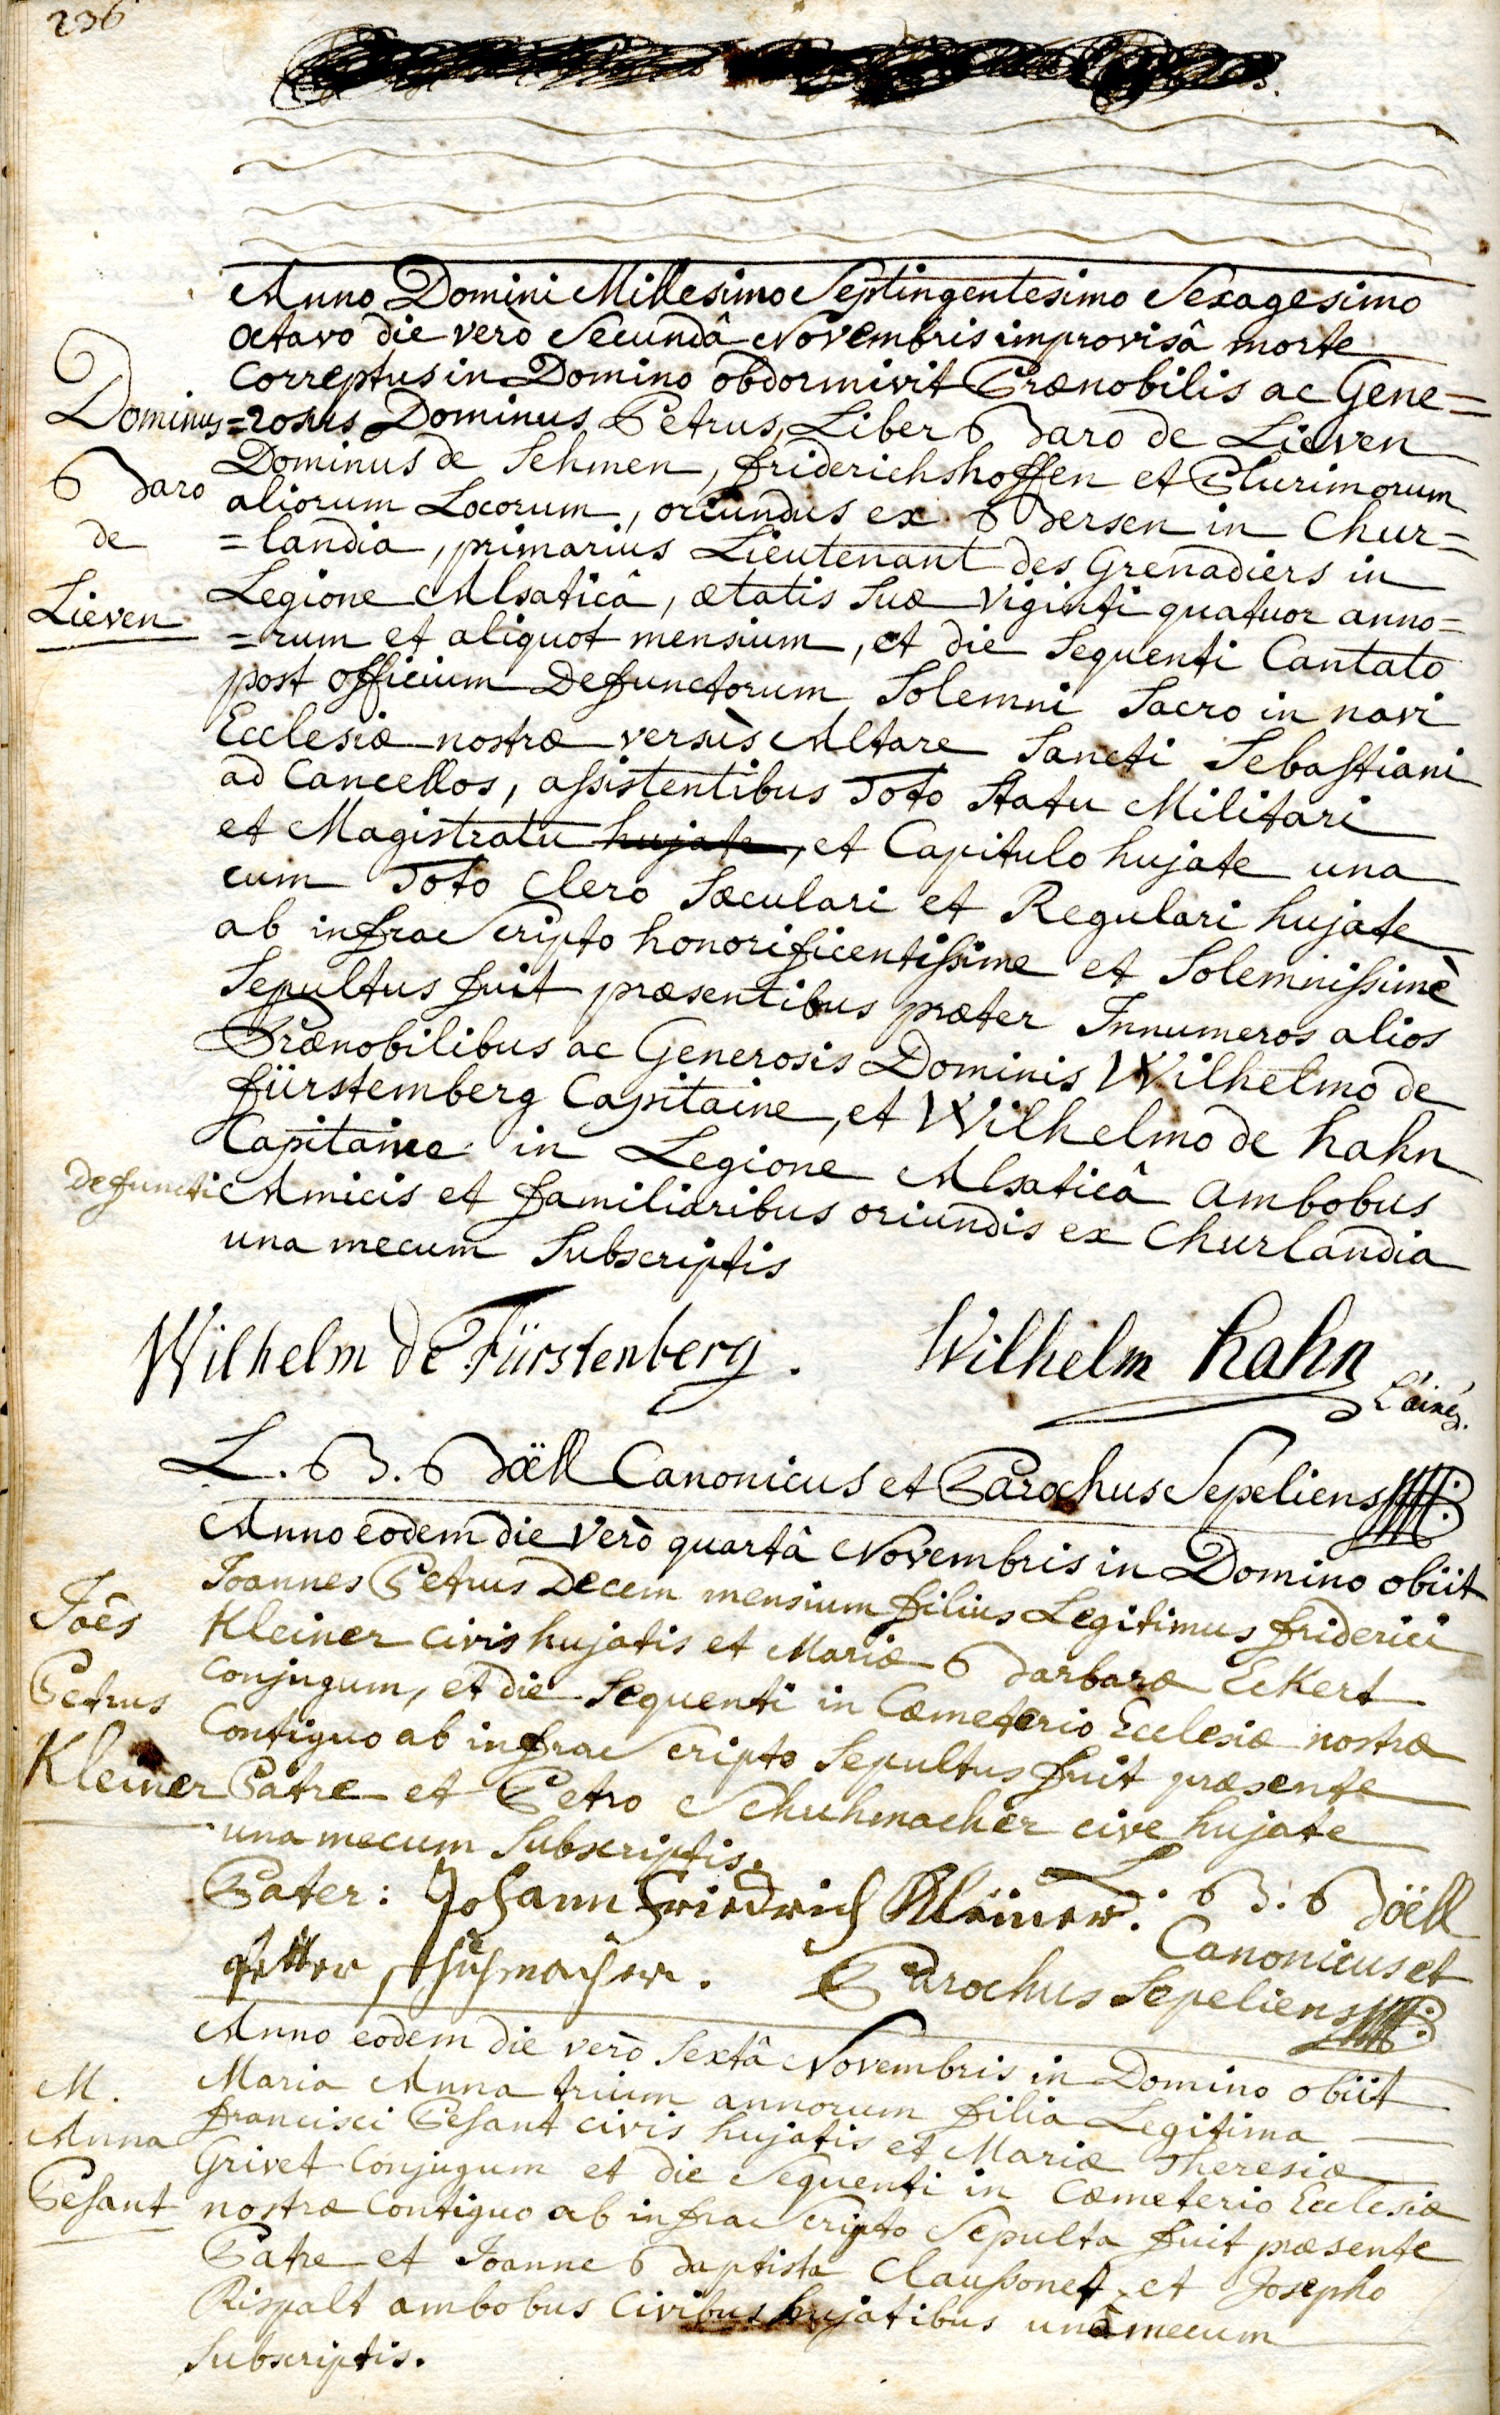 236
Anno Domini Millesimo Septingentesimo Sexagesimo
octavo die verò Secundâ Novembris improvisâ morte
correptus in Domino obdormivit Prænobilis ac Gene=
Dominus
=rosus Dominus Petrus Liber Baro de Lieven
Dominus de Sehmen, friderichshoffen et Plurimorum
Baro
aliorum Locorum, oriundus ex Bersen in Chur=
de
=landia, primarius Lieutenant des Grenadiers in
Lieven
Legione Alsaticâ, ætatis suæ viginti quatuor anno=
=rum et aliquot mensium, et die sequenti Cantato
post officium Defunctorum Solemni Sacro in navi
Ecclesiæ nostræ versùs Altare Sancti Sebastiani
ad Cancellos, assistentibus Toto Statu Militari
et Magistratu hujate, et Capitulo hujate una
cum Toto Clero Sæculari et Regulari hujate
ab infrascripto honorificentissime et Solemnissimè
Sepultus fuit præsentibus præter Innumeros alios
Prænobilibus ac Generosis Dominis Wilhelmo de
fürstemberg Capitaine, et Wilhelmo de hahn
Capitaine in Legione Alsaticâ ambobus
defuncti Amicis et familiaribus oriundis ex Churlandia
una mecum Subscriptis
Wilhelm de Fürstenberg. Wilhelm hahn
l'ainé.
L. B. Böell Canonicus et Parochus Sepeliens
Anno eodem die verò quartâ Novembris in Domino obiit
Joês
Joannes Petrus Decem mensium filius Legitimus friderici
Kleiner civis hujatis et Mariæ Barbaræ Eckert
Petrus
conjugum, et die sequenti in Cæmeterio Ecclesiæ nostræ
Contiguo ab infrascripto Sepultus fuit præsente
Kleiner
Patre et Petro Schuhmacher cive hujate
una mecum Subscriptis.
Pater: Johann Friedrich Kleiner. L. B. Böell
Canonicus et
Petter schuhmacher. Parochus Sepeliens
Anno eodem die verò Sextâ Novembris in Domino obiit
M.
Maria Anna trium annorum filia Legitima
Anna
francisci Pesant civis hujatis et Mariæ Theresiæ
Grivet Conjugum et die Sequenti in Cæmeterio Ecclesiæ
Pesant
nostræ Contiguo ab infrascripto Sepulta fuit præsente
Patre et Joanne Baptista Claussonet et Josepho
Rispalt ambobus Civibus hujatibus unâ mecum
Subscriptis.